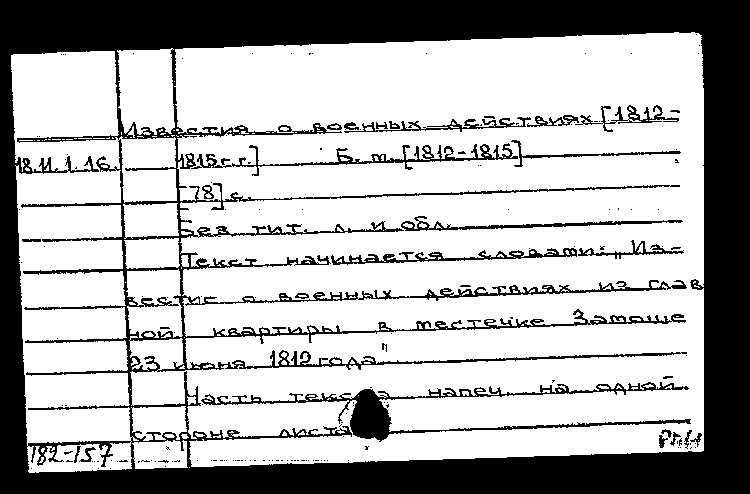 Известия о военных действиях [1812-
18.11.1.16. 1815 г.г.] Б. м. [1812-1815]
[78] с.
Без тит. л. и обл.
Текст начинается словами: „Из-
вестие о военных действиях из глав
ной квартиры в местечке Замоше
23 июня 1812 года"
Часть текста напеч. на одной
стороне листа
182-157